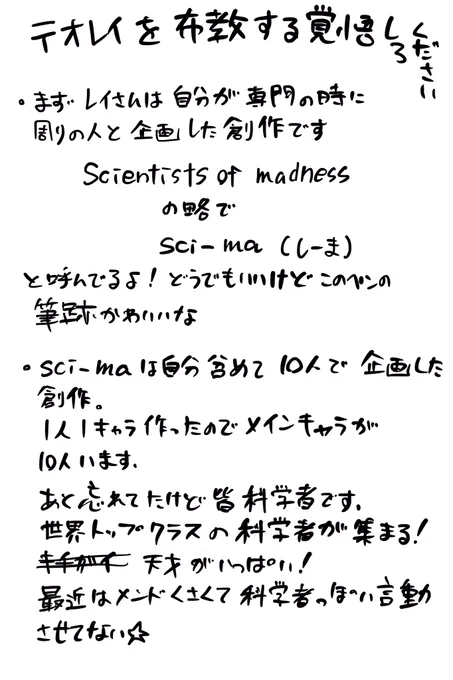 テオレイを布教する覚悟しろください
・まずレイさんは自分が専門の時に
周りの人と企画した創作です
Scientists of madness
の略で
sci-ma (しーま)
と呼んでるよ！どうでもいいけどこのペンの
筆跡かわいいな
・sci-maは自分含めて10人で企画した
創作。
1人1キャラ作ったのでメインキャラが
10人います.
あと忘れてたけど皆科学者です.
世界トップクラスの科学者が集まる！
天才がいっぱい！
最近はメンドくさくて科学者っぽい言動
させてない☆